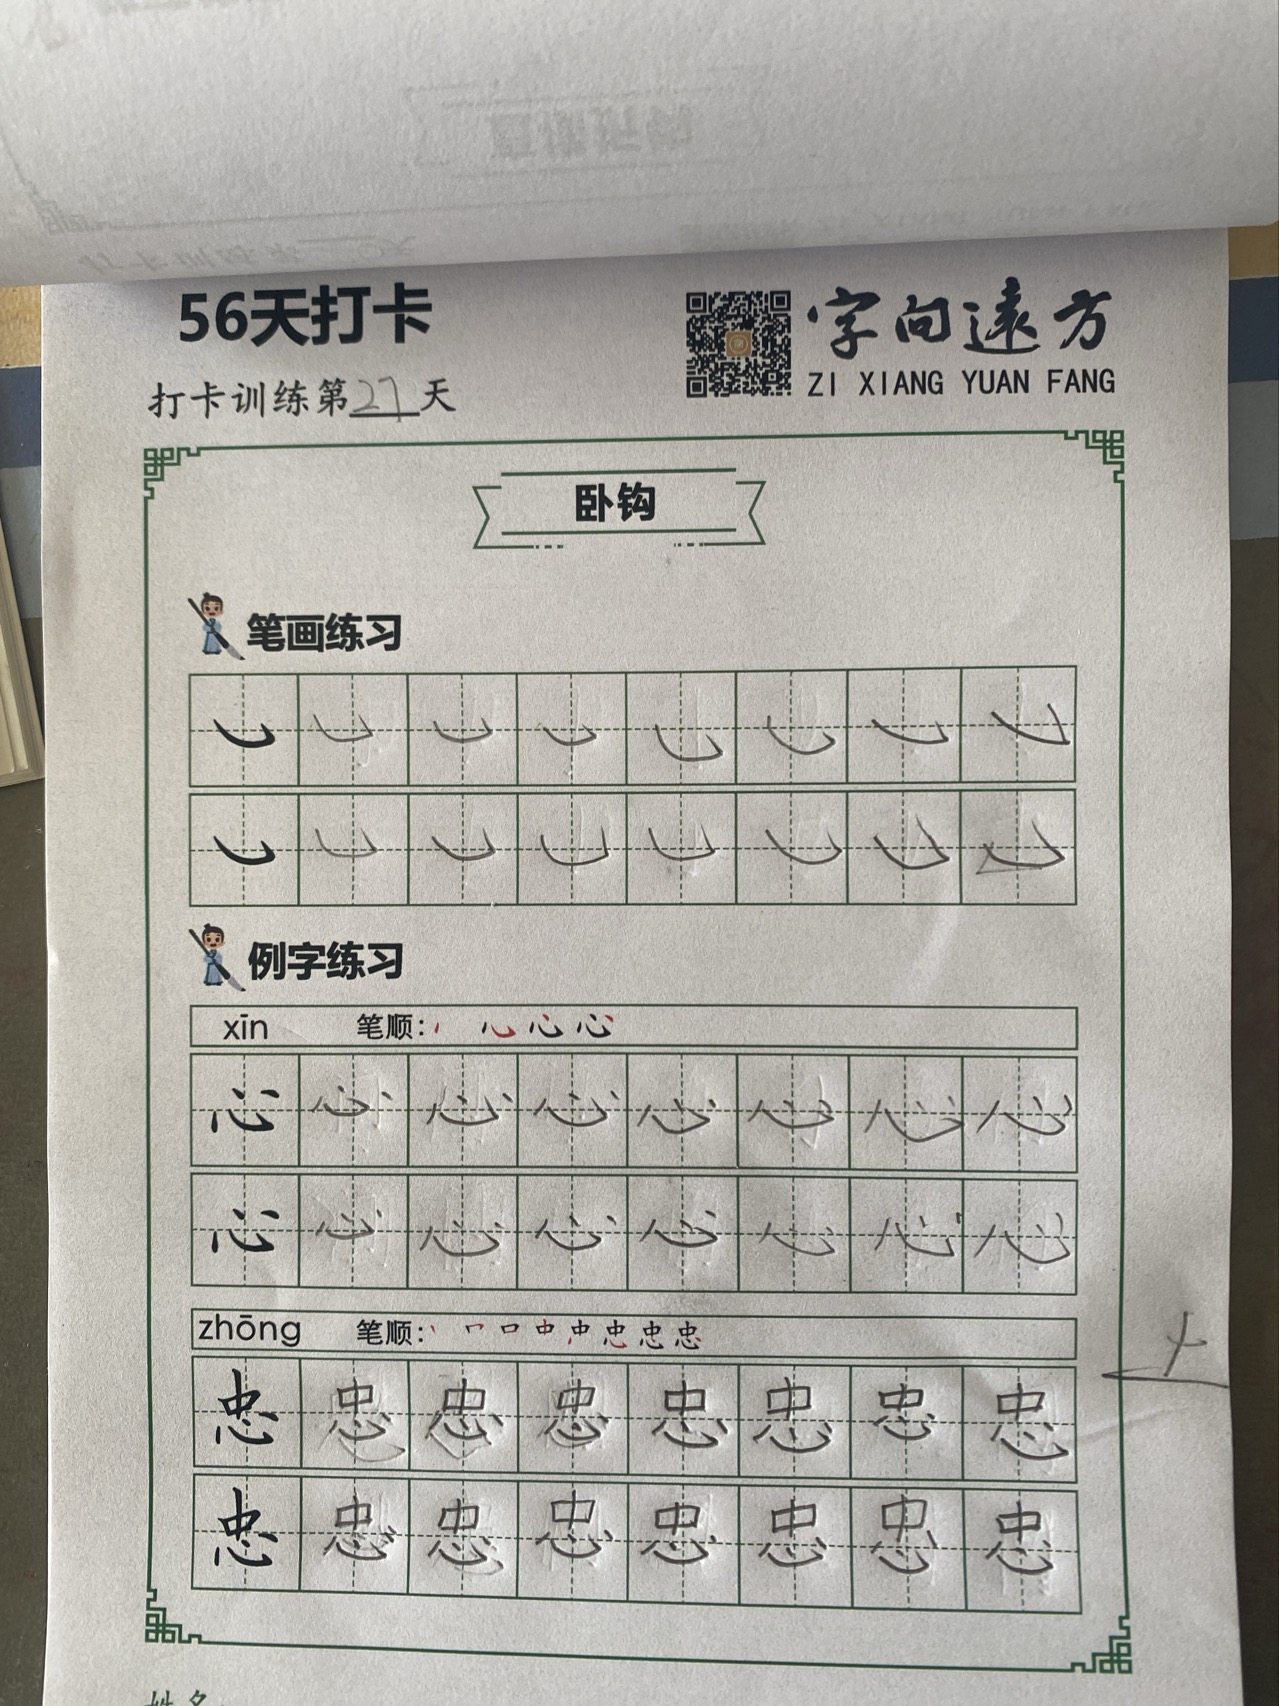 56天打卡
字向遠方
ZI XIANG YUAN FANG
打卡训练第27天
卧钩
笔画练习
例字练习
xīn 笔顺: 心 心 心
心 心 心 心 心 心 心 心
心 心 心 心 心 心 心 心
zhōng 笔顺: 丶 冖 口 中 忠 忠 忠
忠 忠 忠 忠 忠 忠 忠 忠
忠 忠 忠 忠 忠 忠 忠 忠
姓名